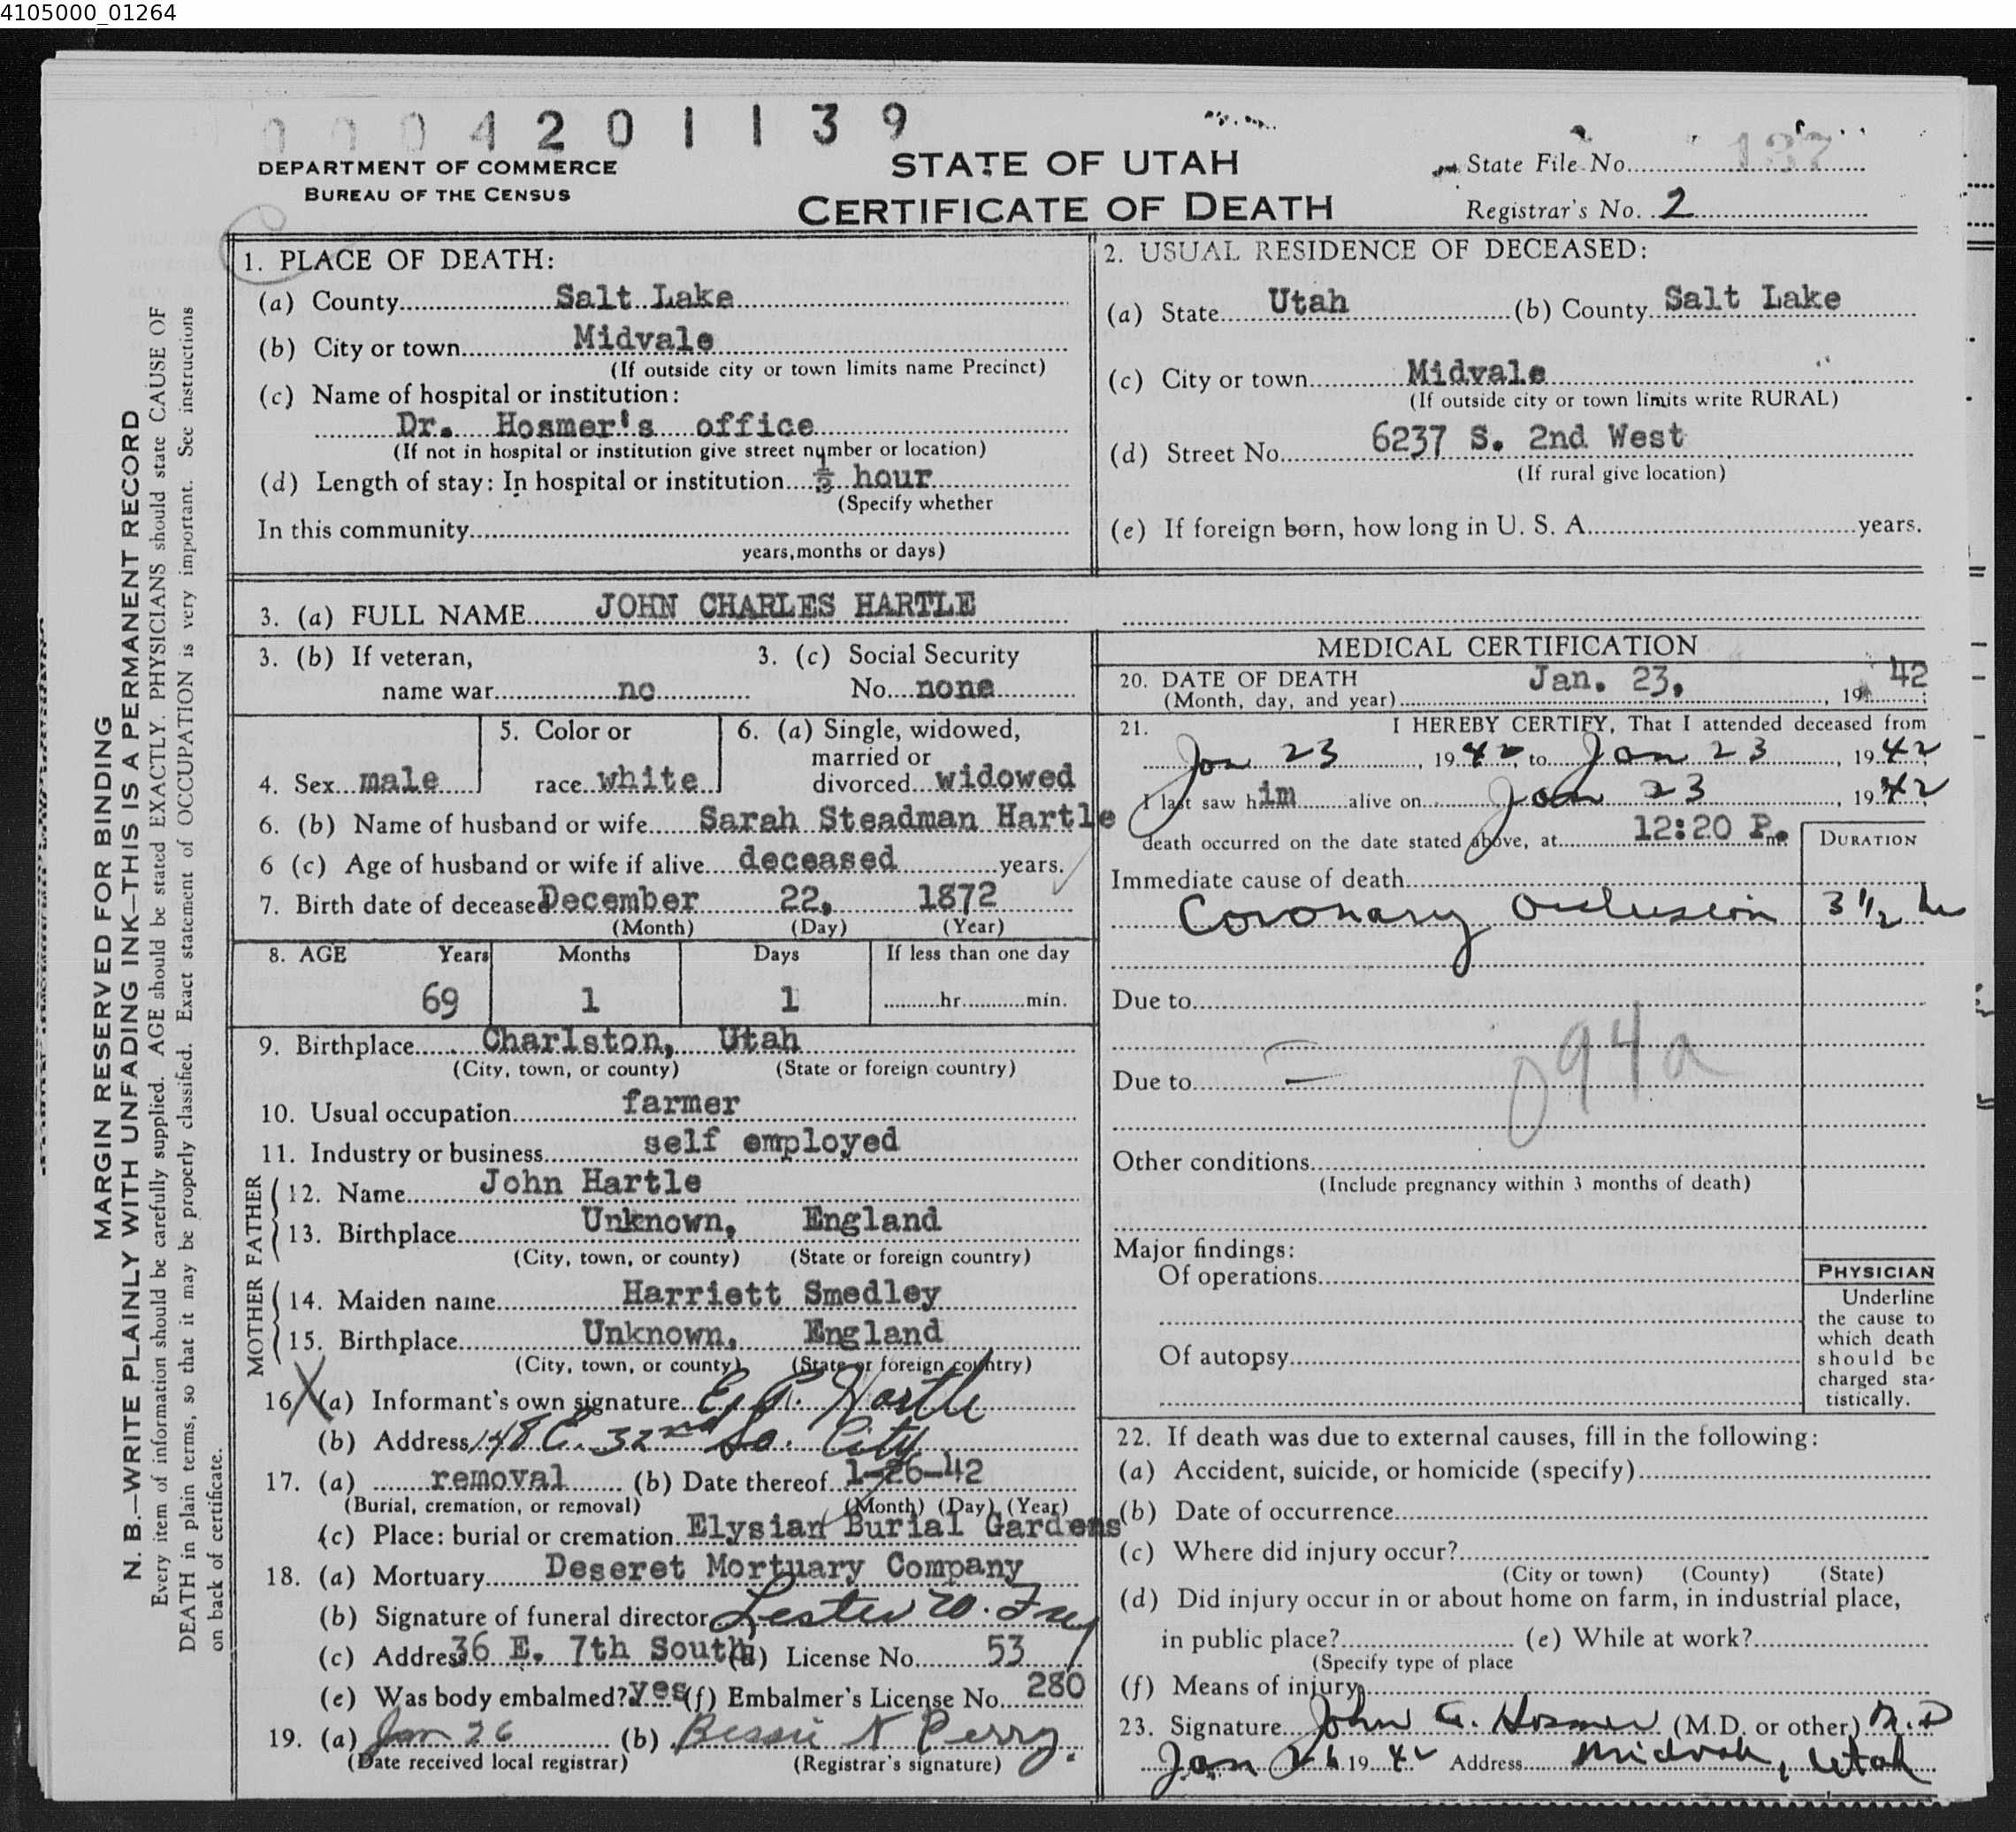 4105000_01264
0 0 0 4 2 0 1 1 3 9
DEPARTMENT OF COMMERCE
BUREAU OF THE CENSUS
STATE OF UTAH
CERTIFICATE OF DEATH
State File No. 137
Registrar's No. 2
MARGIN RESERVED FOR BINDING
N. B.—WRITE PLAINLY WITH UNFADING INK—THIS IS A PERMANENT RECORD
Every item of information should be carefully supplied. AGE should be stated EXACTLY. PHYSICIANS should state CAUSE OF
DEATH in plain terms, so that it may be properly classified. Exact statement of OCCUPATION is very important. See instructions
on back of certificate.
1. PLACE OF DEATH:
(a) County Salt Lake
(b) City or town Midvale
(If outside city or town limits name Precinct)
(c) Name of hospital or institution:
Dr. Hosmer's office
(If not in hospital or institution give street number or location)
(d) Length of stay: In hospital or institution ½ hour
(Specify whether
In this community
years, months or days)
2. USUAL RESIDENCE OF DECEASED:
(a) State Utah (b) County Salt Lake
(c) City or town Midvale
(If outside city or town limits write RURAL)
(d) Street No. 6237 S. 2nd West
(If rural give location)
(e) If foreign born, how long in U. S. A. years.
3. (a) FULL NAME JOHN CHARLES HARTLE
3. (b) If veteran, name war no
3. (c) Social Security No. none
4. Sex male
5. Color or race white
6. (a) Single, widowed, married or divorced widowed
6. (b) Name of husband or wife Sarah Steadman Hartle
6 (c) Age of husband or wife if alive deceased years.
7. Birth date of deceased December 22, 1872
(Month) (Day) (Year)
8. AGE Years Months Days If less than one day
69 1 1 hr. min.
9. Birthplace Charlston, Utah
(City, town, or county) (State or foreign country)
10. Usual occupation farmer
11. Industry or business self employed
FATHER
12. Name John Hartle
13. Birthplace Unknown, England
(City, town, or county) (State or foreign country)
MOTHER
14. Maiden name Harriett Smedley
15. Birthplace Unknown, England
(City, town, or county) (State or foreign country)
16 X (a) Informant's own signature Hartle
(b) Address 148 E. 32nd So. City
17. (a) removal (b) Date thereof 1-26-42
(Burial, cremation, or removal) (Month) (Day) (Year)
(c) Place: burial or cremation Elysian Burial Gardens
18. (a) Mortuary Deseret Mortuary Company
(b) Signature of funeral director Lester W. Fry
(c) Address 36 E. 7th South (d) License No. 53
(e) Was body embalmed? yes (f) Embalmer's License No. 280
19. (a) Jan 26 (b) Bessie N Perry.
(Date received local registrar) (Registrar's signature)
MEDICAL CERTIFICATION
20. DATE OF DEATH Jan. 23, 19 42
(Month, day, and year)
21. I HEREBY CERTIFY, That I attended deceased from
Jan 23, 1942, to Jan 23, 1942
I last saw him alive on Jan 23, 1942
death occurred on the date stated above, at 12:20 P. m.
DURATION
Immediate cause of death
Coronary Occlusion 3 1/2 hr
Due to
Due to —
094a
Other conditions
(Include pregnancy within 3 months of death)
Major findings:
Of operations
Of autopsy
PHYSICIAN
Underline
the cause to
which death
should be
charged sta-
tistically.
22. If death was due to external causes, fill in the following:
(a) Accident, suicide, or homicide (specify)
(b) Date of occurrence
(c) Where did injury occur?
(City or town) (County) (State)
(d) Did injury occur in or about home on farm, in industrial place,
in public place? (e) While at work?
(Specify type of place
(f) Means of injury
23. Signature John G. Hosmer (M.D. or other) M.D
Jan 26 1942 Address Midvale, Utah